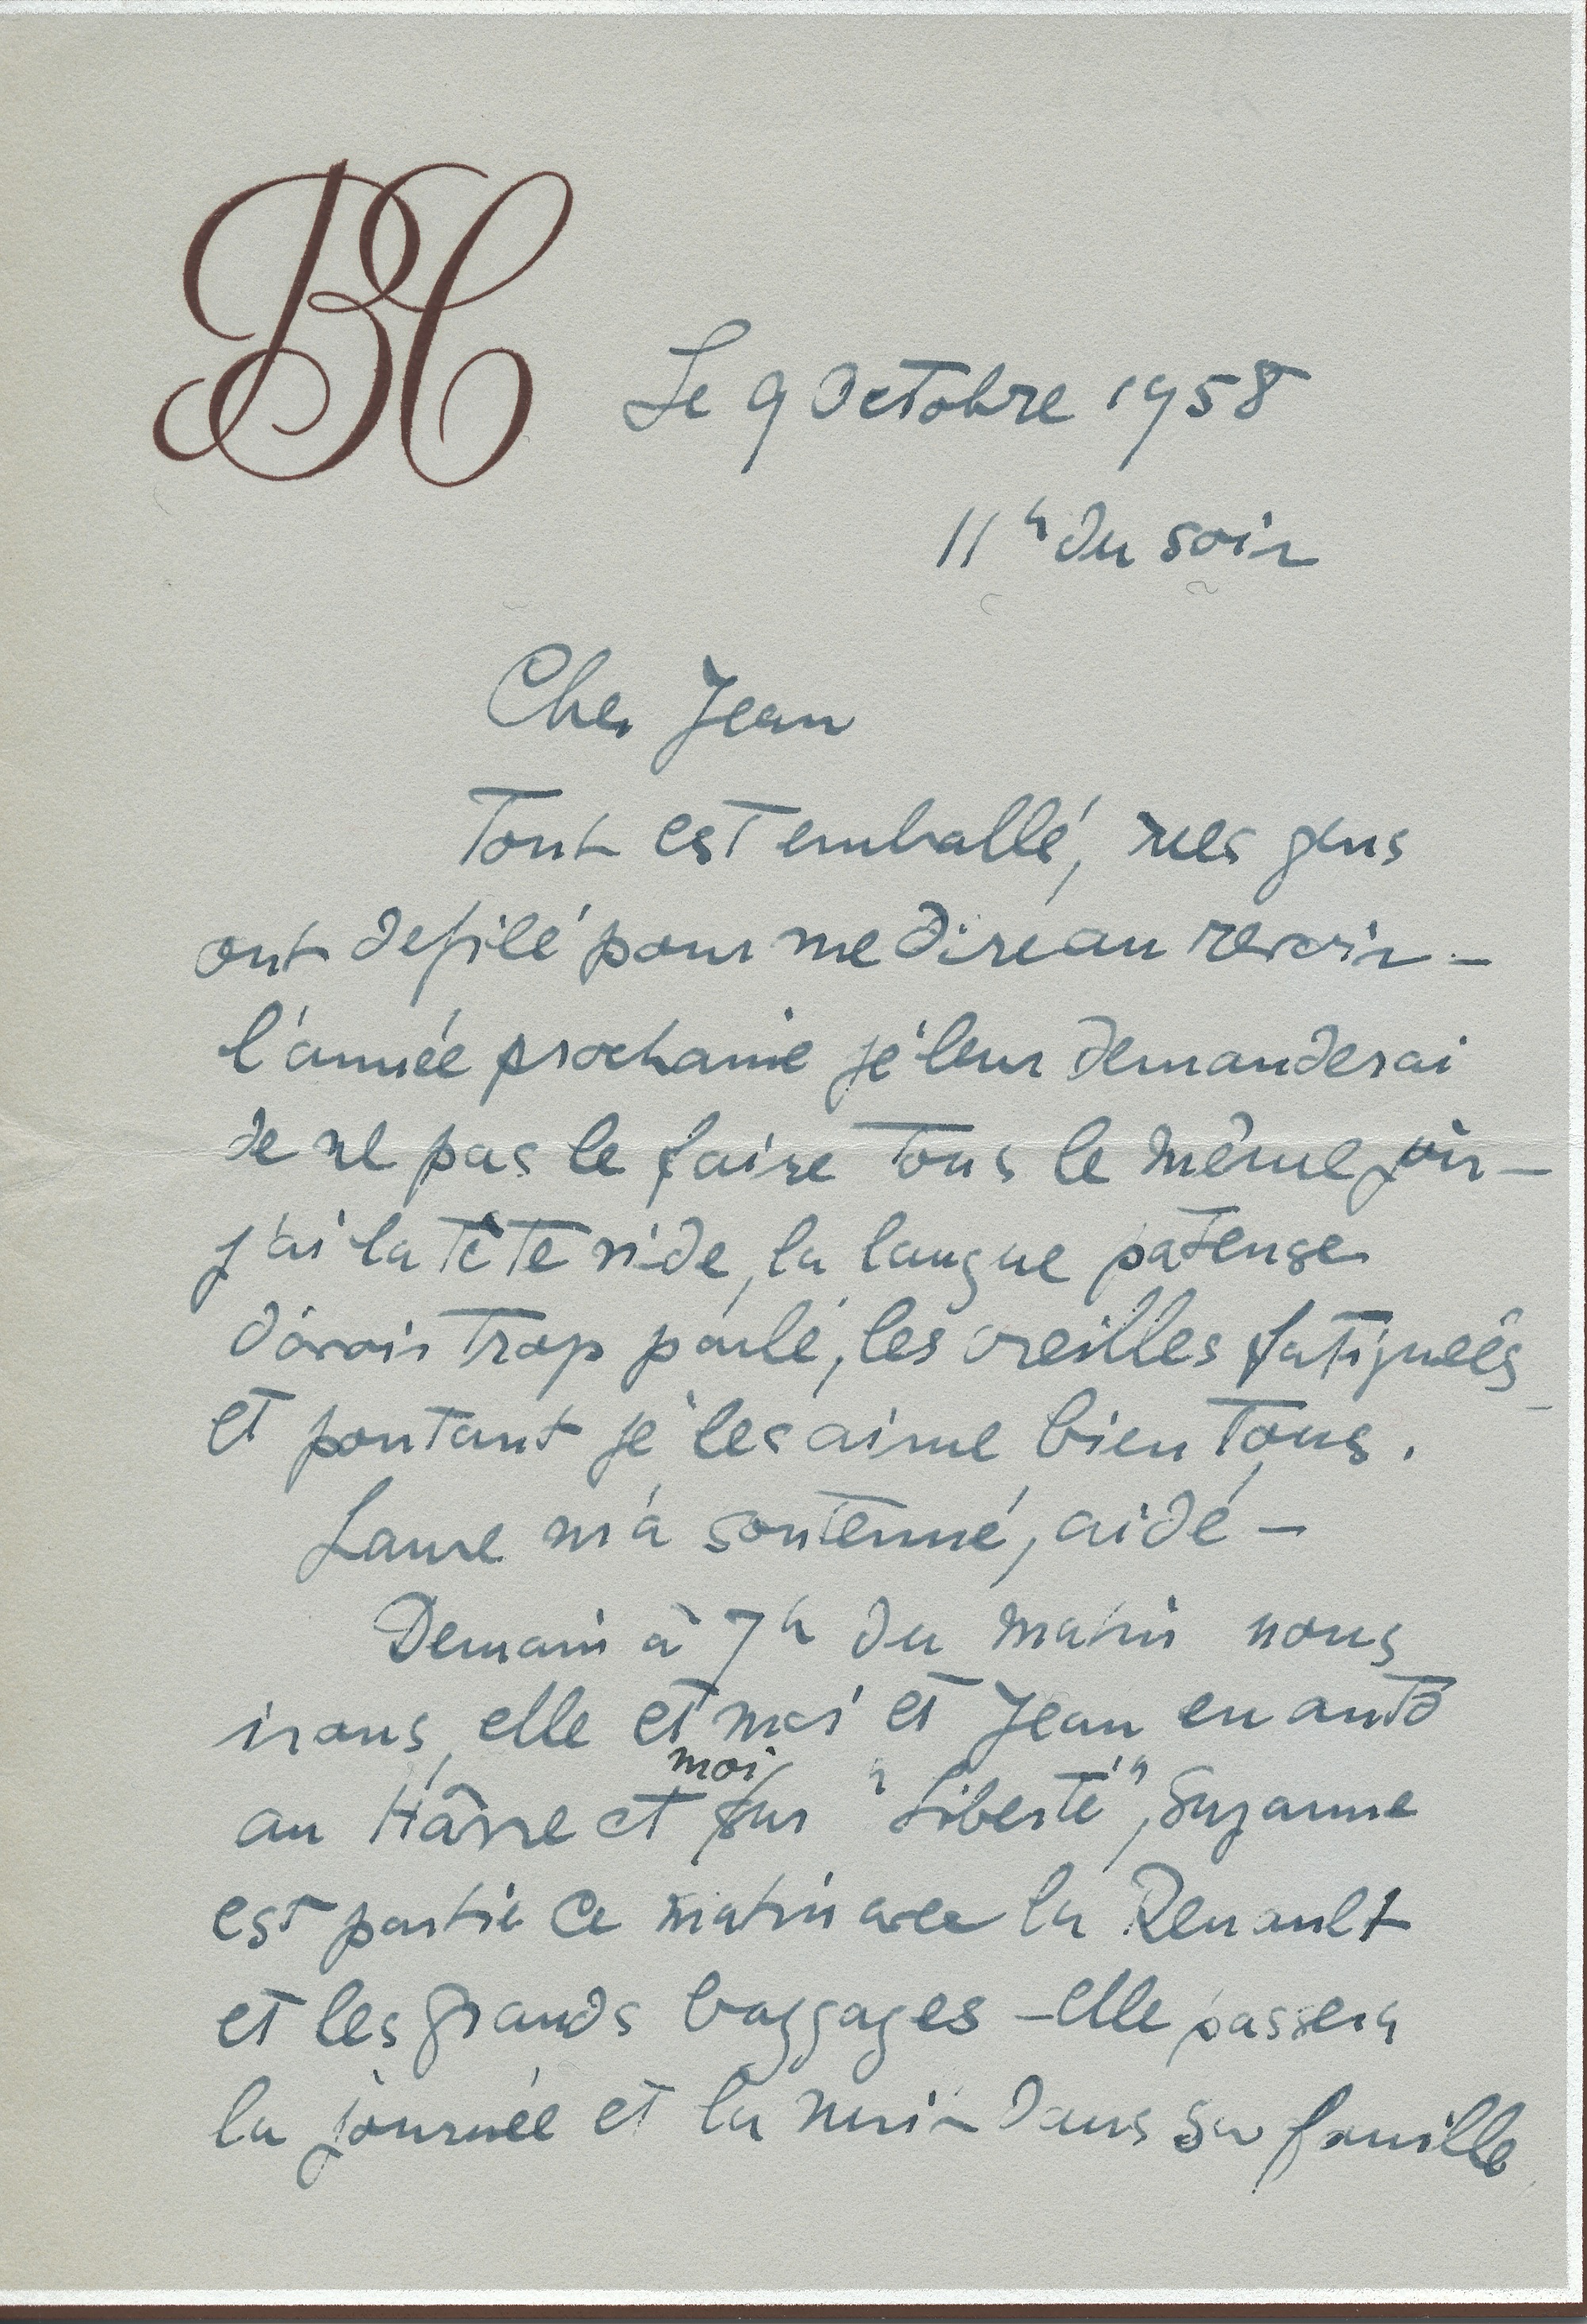 BC
Le 9 Octobre 1958
11h du soir
Cher Jean
Tout est emballé, mes gens
ont defilé pour me dire au revoir –
l'année prochaine je leur demanderai
de ne pas le faire tous le même jour –
j'ai la tête vide, la langue pateuse
d'avoir trop parlé, les oreilles fatiguées
et pourtant je les aime bien tous.
Laure m'a soutenue, aidé –
Demain à 7h du matin nous
irons, elle et moi et Jean en auto
moi
au Hâvre et sur "Liberté", Suzanne
est partie ce matin avec la Renault
et les grands baggages – elle passera
la journée et la nuit dans sa famille